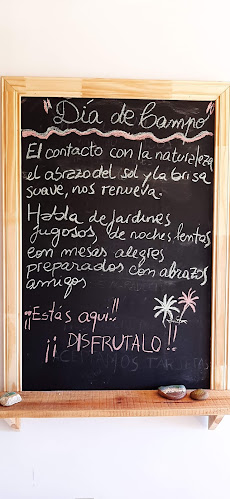 "Día de Campo"
El contacto con la naturaleza
el abrazo del sol y la brisa
suave, nos renueva.
Habla de Jardines
jugosos, de noches lentas
con mesas alegres
preparados con abrazos
amigos
¡¡Estás aqui!!
¡¡DISFRUTALO!!